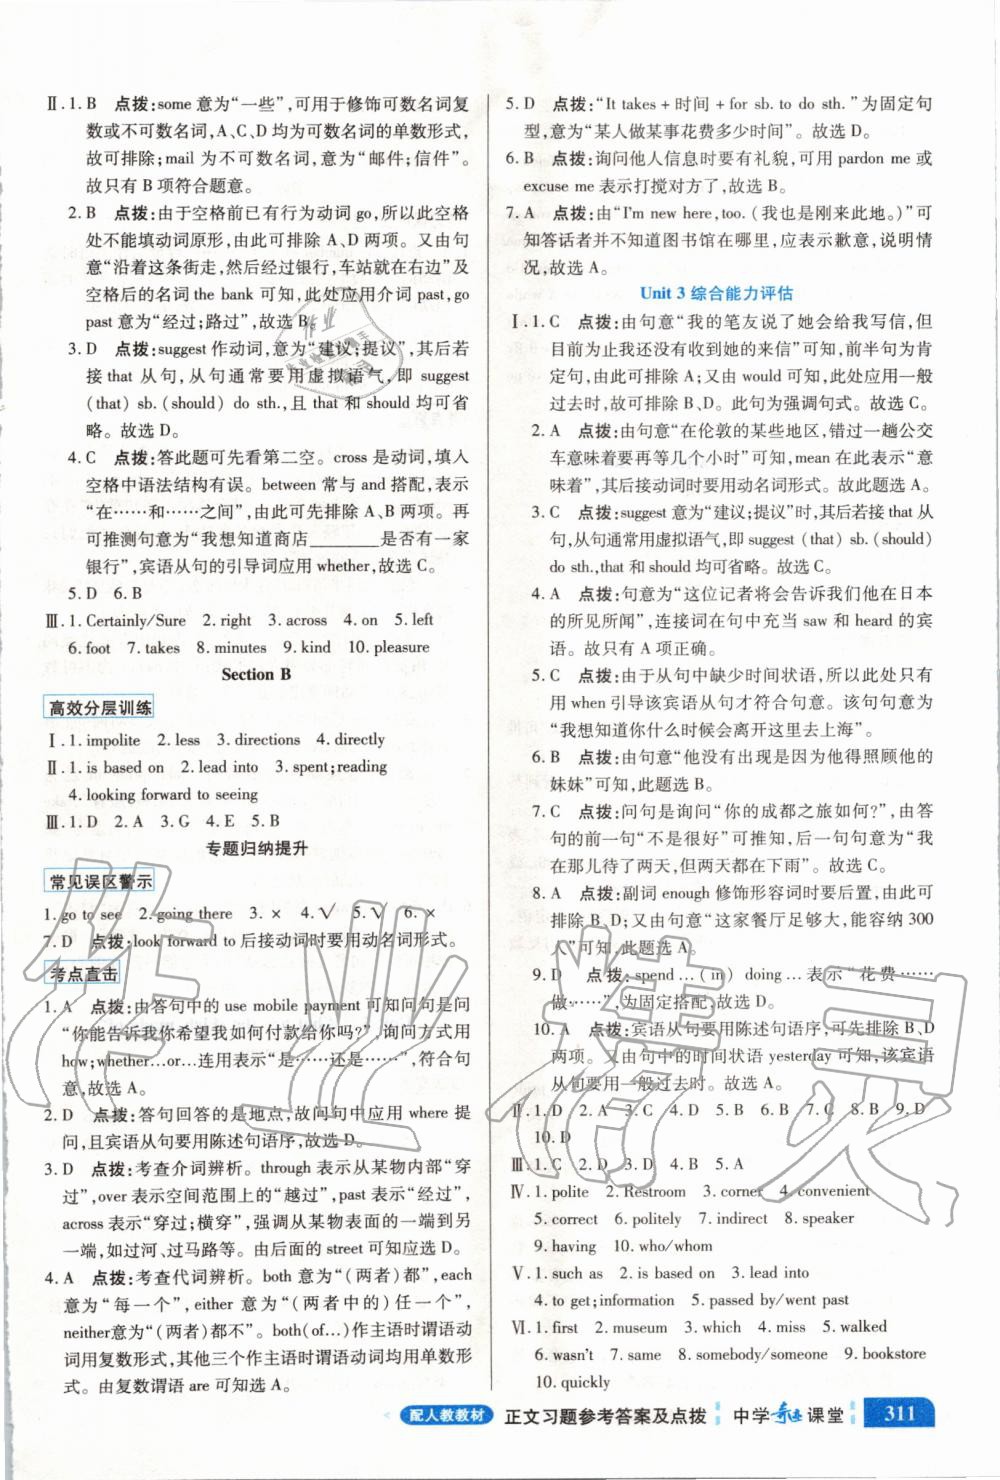 Ⅱ.1. B 点拨:some 意为“一些”,可用于修饰可数名词复
数或不可数名词,A、C、D 均为可数名词的单数形式,
故可排除;mail 为不可数名词,意为“邮件;信件”。
故只有 B 项符合题意。
2. B 点拨:由于空格前已有行为动词 go,所以此空格
处不能填动词原形,由此可排除 A、D 两项。又由句
意“沿着这条街走,然后经过银行,车站就在右边”及
空格后的名词 the bank 可知,此处应用介词 past,go
past 意为“经过;路过”,故选 B。
3. D 点拨:suggest 作动词,意为“建议;提议”,其后若
接 that 从句,从句通常要用虚拟语气,即 suggest
(that) sb. (should) do sth.,且 that 和 should 均可省
略。故选 D。
4. C 点拨:答此题可先看第二空。cross 是动词,填入
空格中语法结构有误。between 常与 and 搭配,表示
“在……和……之间”,由此可先排除 A、B 两项。再
可推测句意为“我想知道商店________是否有一家
银行”,宾语从句的引导词应用 whether,故选 C。
5. D 6. B
Ⅲ.1. Certainly/Sure 2. right 3. across 4. on 5. left
6. foot 7. takes 8. minutes 9. kind 10. pleasure
Section B
高效分层训练
Ⅰ.1. impolite 2. less 3. directions 4. directly
Ⅱ.1. is based on 2. lead into 3. spent;reading
4. looking forward to seeing
Ⅲ.1. D 2. A 3. G 4. E 5. B
专题归纳提升
常见误区警示
1. go to see 2. going there 3. × 4. √ 5. √ 6. ×
7. D 点拨:look forward to 后接动词时要用动名词形式。
考点直击
1. A 点拨:由答句中的 use mobile payment 可知问句是问
“你能告诉我你希望我如何付款给你吗?”,询问方式用
how;whether…or…连用表示“是……还是……”,符合句
意,故选 A。
2. D 点拨:答句回答的是地点,故问句中应用 where 提
问,且宾语从句要用陈述句语序,故选 D。
3. D 点拨:考查介词辨析。through 表示从某物内部“穿
过”,over 表示空间范围上的“越过”,past 表示“经过”,
across 表示“穿过;横穿”,强调从某物表面的一端到另
一端,如过河、过马路等。由后面的 street 可知应选 D。
4. A 点拨:考查代词辨析。both 意为“(两者)都”,each
意为“每一个”,either 意为“(两者中的)任一个”,
neither意为“(两者)都不”。both(of…)作主语时谓语动
词用复数形式,其他三个作主语时谓语动词均用单数形
式。由复数谓语 are 可知选 A。
5. D 点拨:“It takes + 时间 + for sb. to do sth.”为固定句
型,意为“某人做某事花费多少时间”。故选 D。
6. B 点拨:询问他人信息时要有礼貌,可用 pardon me 或
excuse me 表示打搅对方了,故选 B。
7. A 点拨:由“I'm new here, too.(我也是刚来此地。)”可
知答话者并不知道图书馆在哪里,应表示歉意,说明情
况,故选 A。
Unit 3 综合能力评估
Ⅰ.1. C 点拨:由句意“我的笔友说了她会给我写信,但
目前为止我还没有收到她的来信”可知,前半句为肯
定句,由此可排除 A;又由 would 可知,此处应用一般
过去时,故可排除 B、D。此句为强调句式。故选 C。
2. A 点拨:由句意“在伦敦的某些地区,错过一趟公交
车意味着要再等几个小时”可知,mean 在此处表示“意
味着”,其后接动词时要用动名词形式。故此题选 A。
3. C 点拨:suggest 意为“建议;提议”时,其后若接 that 从
句,从句通常用虚拟语气,即 suggest (that) sb. (should)
do sth.,that 和 should 均可省略。故选 C。
4. A 点拨:句意为“这位记者将会告诉我们他在日本
的所见所闻”,连接词在句中充当 saw 和 heard 的宾
语。故只有 A 项正确。
5. C 点拨:由于从句中缺少时间状语,所以只有选
用 when 引导该宾语从句才符合句意。该句句意为
“我想知道你什么时候会离开这里去上海”。
6. B 点拨:由句意“他没有出现是因为他得照顾他的
妹妹”可知,此题选 B。
7. C 点拨:问句是询问“你的成都之旅如何?”,由答
句的前一句“不是很好”可推知,后一句句意为“我
在那儿待了两天,但两天都在下雨”。故选 C。
8. A 点拨:副词 enough 修饰形容词时要后置,由此可
排除 B、D;又由句意“这家餐厅足够大,能容纳 300
人”可知,此题选 A。
9. D 点拨:spend…(in) doing…表示“花费……
做……”,为固定搭配,故选 D。
10. A 点拨:宾语从句要用陈述句语序,可先排除 B、D
两项。又由句中的时间状语 yesterday 可知,该宾语
从句要用一般过去时。故选 A。
Ⅱ.1. D 2. A 3. C 4. D 5. B 6. B 7. C 8. B 9. D
10. D
Ⅲ.1. C 2. D 3. A 4. B 5. A
Ⅳ.1. polite 2. Restroom 3. corner 4. convenient
5. correct 6. politely 7. indirect 8. speaker
9. having 10. who/whom
Ⅴ.1. such as 2. is based on 3. lead into
4. to get;information 5. passed by/went past
Ⅵ.1. first 2. museum 3. which 4. miss 5. walked
6. wasn't 7. same 8. somebody/someone 9. bookstore
10. quickly
配人教教材 正文习题参考答案及点拨 中学奇迹课堂 311
作业精灵